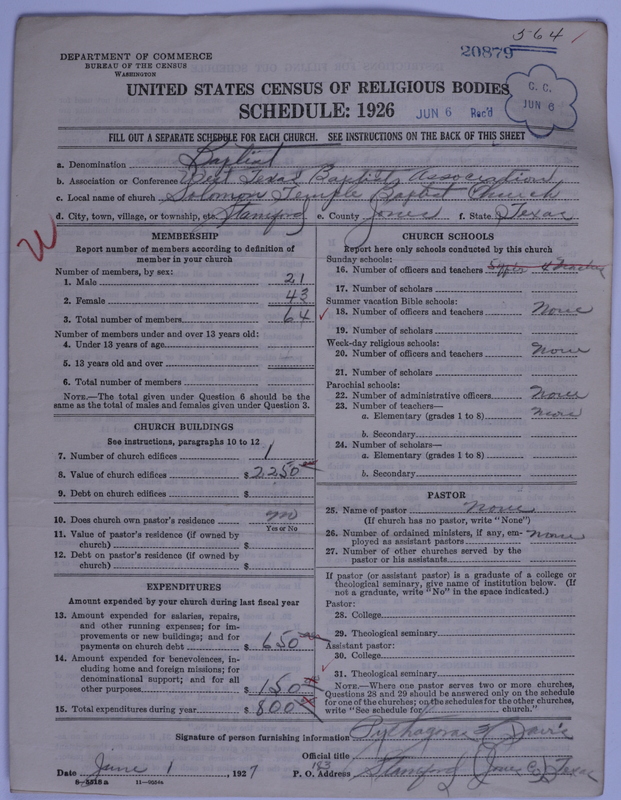 564
20879
DEPARTMENT OF COMMERCE
BUREAU OF THE CENSUS
WASHINGTON
C. C.
JUN 6
UNITED STATES CENSUS OF RELIGIOUS BODIES
SCHEDULE: 1926
JUN 6 Rec'd
FILL OUT A SEPARATE SCHEDULE FOR EACH CHURCH. SEE INSTRUCTIONS ON THE BACK OF THIS SHEET
a. Denomination Baptist
b. Association or Conference West Texas Baptist Association
c. Local name of church Solomon Temple Baptist Church
d. City, town, village, or township, etc. Stamford e. County Jones f. State Texas
MEMBERSHIP
Report number of members according to definition of
member in your church
Number of members, by sex:
1. Male 21
2. Female 43
3. Total number of members 64
Number of members under and over 13 years old:
4. Under 13 years of age
5. 13 years old and over
6. Total number of members
NOTE.—The total given under Question 6 should be
same as the total of males and females given under Question 3.
CHURCH BUILDINGS
See instructions, paragraphs 10 to 12
7. Number of church edifices 1
8. Value of church edifices $ 2250
9. Debt on church edifices $
10. Does church own pastor's residence no
Yes or No
11. Value of pastor's residence (if owned by
church) $
12. Debt on pastor's residence (if owned by
church) $
EXPENDITURES
Amount expended by your church during last fiscal year
13. Amount expended for salaries, repairs,
and other running expenses; for im-
provements or new buildings; and for
payments on church debt $ 650
14. Amount expended for benevolences, in-
cluding home and foreign missions; for
denominational support; and for all
other purposes $ 150
15. Total expenditures during year $ 800
CHURCH SCHOOLS
Report here only schools conducted by this church
Sunday schools:
16. Number of officers and teachers
17. Number of scholars
Summer vacation Bible schools:
18. Number of officers and teachers None
19. Number of scholars
Week-day religious schools:
20. Number of officers and teachers None
21. Number of scholars
Parochial schools:
22. Number of administrative officers None
23. Number of teachers—
a. Elementary (grades 1 to 8) None
b. Secondary
24. Number of scholars—
a. Elementary (grades 1 to 8)
b. Secondary
PASTOR
25. Name of pastor None
(If church has no pastor, write "None")
26. Number of ordained ministers, if any, em-
ployed as assistant pastors None
27. Number of other churches served by the
pastor or his assistants
If pastor (or assistant pastor) is a graduate of a college or
theological seminary, give name of institution below. (If
not a graduate, write "No" in the space indicated.)
Pastor:
28. College
29. Theological seminary
Assistant pastor:
30. College
31. Theological seminary
NOTE.—Where one pastor serves two or more churches,
Questions 28 and 29 should be answered only on the schedule
for one of the churches; on the schedules for the other churches,
write "See schedule for church."
Signature of person furnishing information Pythagoras F Davis
Official title
Date June 1, 1927 183 P. O. Address Stamford (Jones Co) Texas
8-5318a 11-9024a